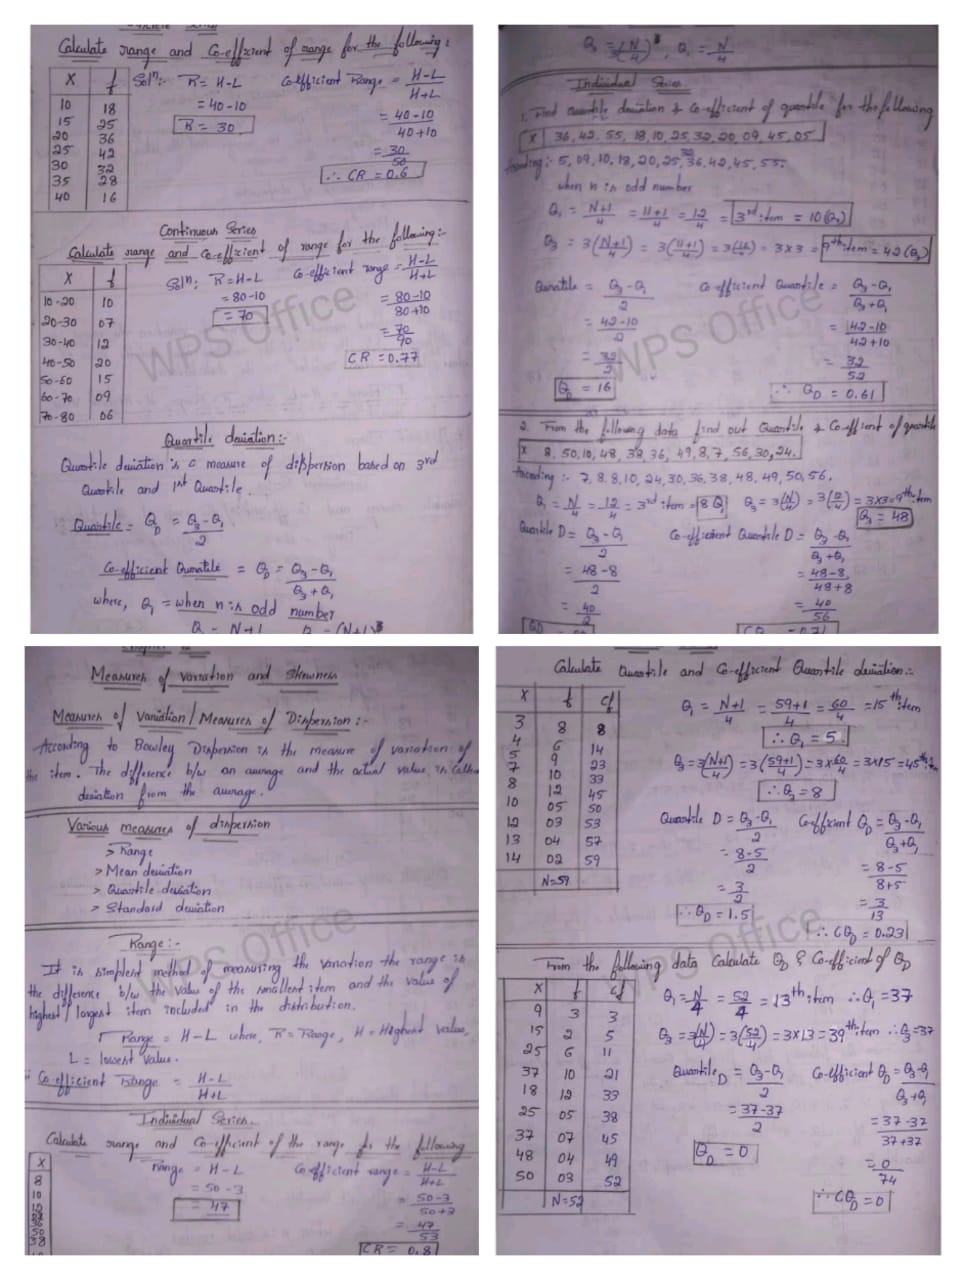 Calculate range and Co-efficient of range for the following:
X f
10 18
15 25
20 36
25 42
30 32
35 28
40 16
Soln:- R = H-L
= 40-10
R = 30
Coefficient Range = H-L / H+L
= 40-10 / 40+10
= 30 / 50
∴ CR = 0.6
Continuous Series
Calculate range and Co-efficient of range for the following:-
X f
10-20 10
20-30 07
30-40 12
40-50 20
50-60 15
60-70 09
70-80 06
Soln: R = H-L
= 80-10
= 70
Co-efficient range = H-L / H+L
= 80-10 / 80+10
= 70 / 90
CR = 0.77
Quartile deviation:-
Quartile deviation is a measure of dispersion based on 3rd
Quartile and 1st Quartile.
Quartile = QD = Q3-Q1 / 2
Co-efficient Quartile = QD = Q3-Q1 / Q3+Q1
where, Q1 = when n is odd number
WPS Office
Q3 = 3(N/4), Q1 = N/4
Individual Series
1. Find quartile deviation & Co-efficient of quartile for the following
X 36, 42, 55, 18, 10, 25, 32, 20, 09, 45, 05
Ascending:- 5, 09, 10, 18, 20, 25, 32, 36, 42, 45, 55.
when n is odd number
Q1 = N+1 / 4 = 11+1 / 4 = 12 / 4 = 3rd item = 10 (Q1)
Q3 = 3(N+1 / 4) = 3(11+1 / 4) = 3(12 / 4) = 3×3 = 9th item = 42 (Q3)
Quartile = Q3-Q1 / 2
= 42-10 / 2
= 32 / 2
QD = 16
Co-efficient Quartile = Q3-Q1 / Q3+Q1
= 42-10 / 42+10
= 32 / 52
∴ QD = 0.61
2. From the following data find out Quartile & Co-efficient of quartile
X 8, 50, 10, 48, 38, 36, 49, 8, 7, 56, 30, 24.
Ascending:- 7, 8, 8, 10, 24, 30, 36, 38, 48, 49, 50, 56.
Q1 = N/4 = 12/4 = 3rd item = 8 Q1 Q3 = 3(N/4) = 3(12/4) = 3×3 = 9th item
Q3 = 48
Quartile D = Q3-Q1 / 2
= 48-8 / 2
= 40 / 2
Co-efficient Quartile D = Q3-Q1 / Q3+Q1
= 48-8 / 48+8
= 40 / 56
WPS Office
Measures of variation and Skewness
Measures of Variation / Measures of Dispersion:-
According to Bowley Dispersion is the measure of variation of
the item. The difference b/w an average and the actual value is called
deviation from the average.
Various measures of dispersion
> Range
> Mean deviation
> Quartile deviation
> Standard deviation
Range:-
It is simplest method of measuring the variation the range is
the difference b/w the value of the smallest item and the value of
highest / largest item included in the distribution.
Range = H-L where, R = Range, H = Highest value,
L = lowest value.
Co-efficient Range = H-L / H+L
Individual Series.
Calculate range and Co-efficient of the range for the following
X
8
10
50
38
Range = H-L
= 50-3
= 47
Co-efficient range = H-L / H+L
= 50-3 / 50+3
= 47 / 53
CR = 0.8
WPS Office
Calculate Quartile and Co-efficient Quartile deviation:-
X f Cf
3 8 8
4 6 14
5 9 23
7 10 33
8 12 45
10 05 50
12 03 53
13 04 57
14 02 59
N=59
Q1 = N+1 / 4 = 59+1 / 4 = 60 / 4 = 15th item
∴ Q1 = 5
Q3 = 3(N+1 / 4) = 3(59+1 / 4) = 3×60/4 = 3×15 = 45th item
∴ Q3 = 8
Quartile D = Q3-Q1 / 2
= 8-5 / 2
= 3 / 2
∴ QD = 1.5
Co-efficient QD = Q3-Q1 / Q3+Q1
= 8-5 / 8+5
= 3 / 13
∴ CQD = 0.231
From the following data Calculate QD & Co-efficient of QD
X f Cf
9 3 3
15 2 5
25 6 11
37 10 21
18 12 33
25 05 38
37 07 45
48 04 49
50 03 52
N=52
Q1 = N/4 = 52/4 = 13th item ∴ Q1 = 37
Q3 = 3(N/4) = 3(52/4) = 3×13 = 39th item ∴ Q3 = 37
Quartile D = Q3-Q1 / 2
= 37-37 / 2
QD = 0
Co-efficient QD = Q3-Q1 / Q3+Q1
= 37-37 / 37+37
= 0 / 74
∴ CQD = 0
WPS Office